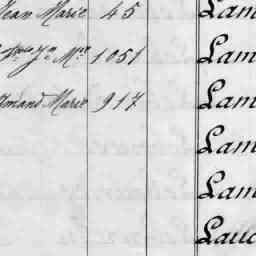 Jean Marie 45 Lam
Jn Mie 1051 Lam
Armand Marie 917 Lam
Lam
Lam
Lauc